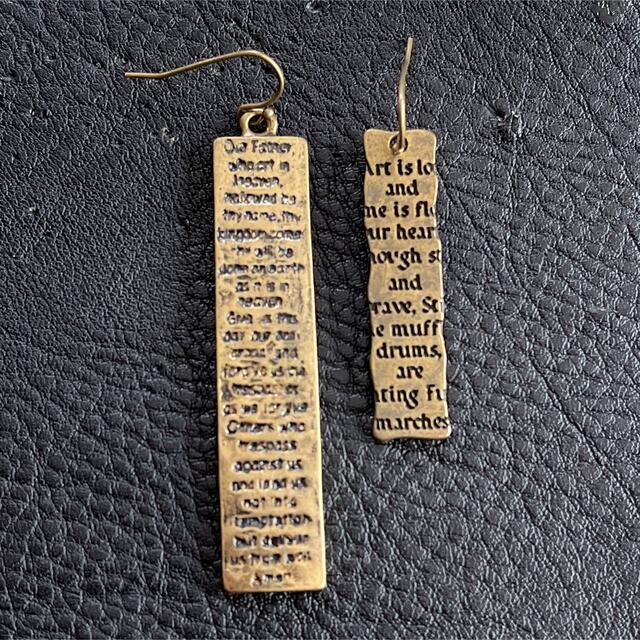 Our Father
who art in
heaven,
hallowed be
thy name, thy
kingdom come
thy will be
done on earth
as it is in
heaven
Give us this
day our daily
bread and
forgive us our
trespasses
as we forgive
Others who
trespass
against us
and lead us
not into
temptation
but deliver
us from evil
Amen
Art is lo
and
me is fle
ur hear
hough st
and
rave, St
e muff
drums,
are
ating Fu
marches